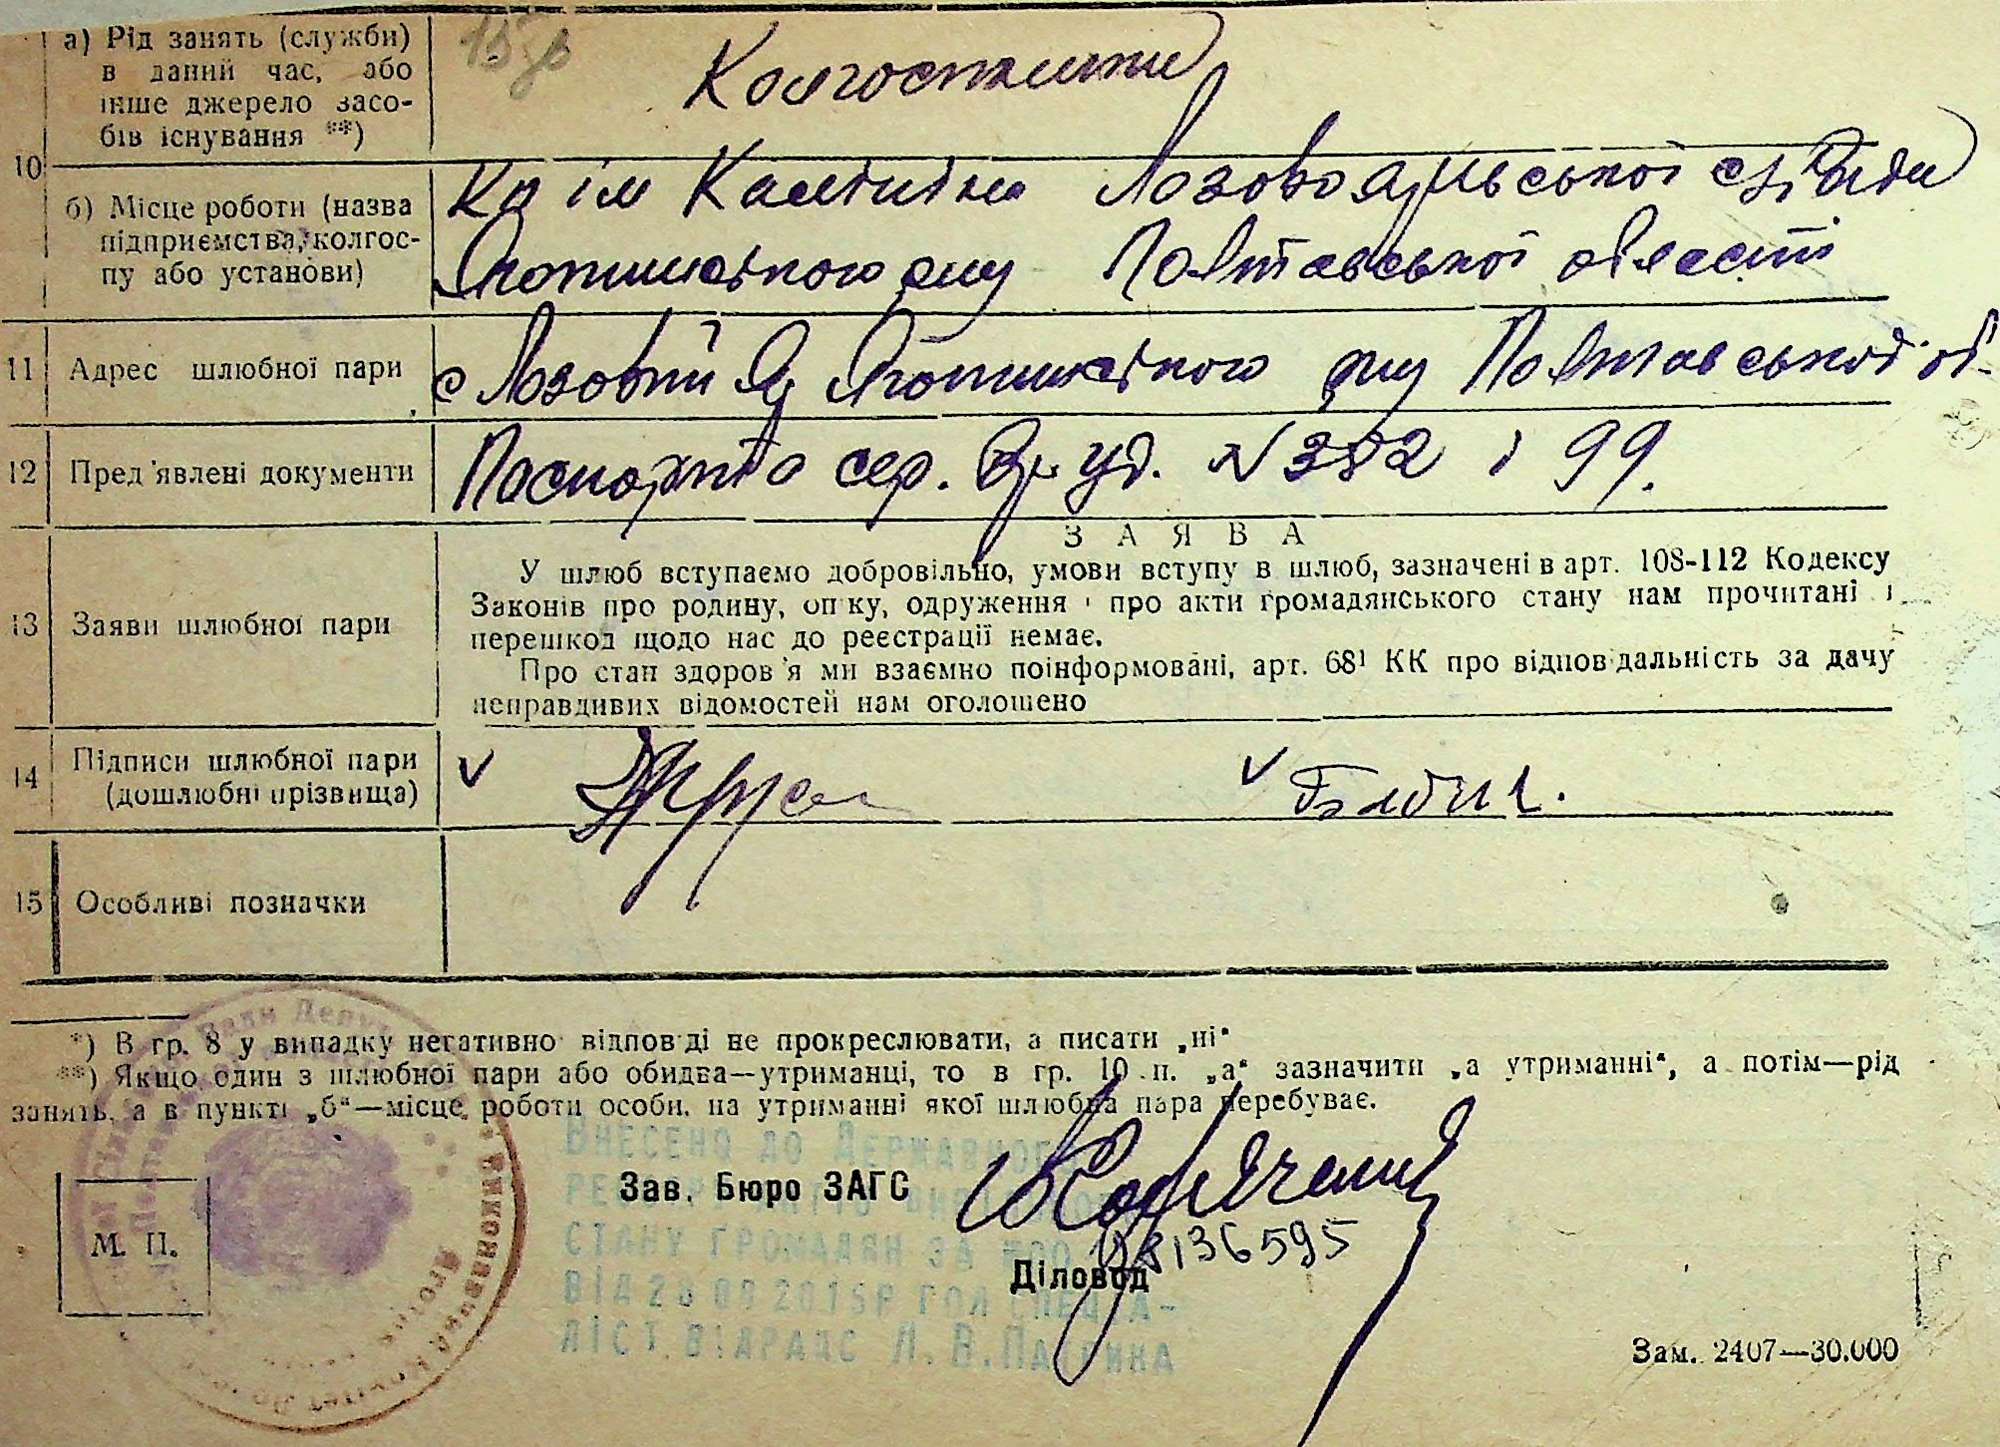 15
10
а) Рід занять (служби)
в даний час, або
інше джерело засо-
бів існування **)
Колгоспники
б) Місце роботи (назва
підприємства, колгос-
пу або установи)
Кп ім Калініна Лозовоярської с/ Ради
Яготинського р-ну Полтавської області
11 Адрес шлюбної пари
с Лозовий Яр Яготинського р-ну Полтавської об-
12 Пред'явлені документи
Паспорта сер. уд. № 382 і 99.
13 Заяви шлюбної пари
ЗАЯВА
У шлюб вступаємо добровільно, умови вступу в шлюб, зазначені в арт. 108-112 Кодексу
Законів про родину, опіку, одруження і про акти громадянського стану нам прочитані і
перешкод щодо нас до реєстрації немає.
Про стан здоров'я ми взаємно поінформовані, арт. 68¹ КК про відповідальність за дачу
неправдивих відомостей нам оголошено
14 Підписи шлюбної пари
(дошлюбні прізвища)
15 Особливі позначки
*) В гр. 8 у випадку негативної відповіді не прокреслювати, а писати „ні"
**) Якщо один з шлюбної пари або обидва—утриманці, то в гр. 10 п. „а" зазначити „а утриманні", а потім—рід
занять, а в пункті „б"—місце роботи особи, на утриманні якої шлюбна пара перебуває.
Внесено до Державного
Зав. Бюро ЗАГС
стану громадян за №00
136595
Діловод
М. П.
від 28 09 2015р гол спеціа-
ліст ВДРАЦС Л. В.
Зам. 2407—30.000